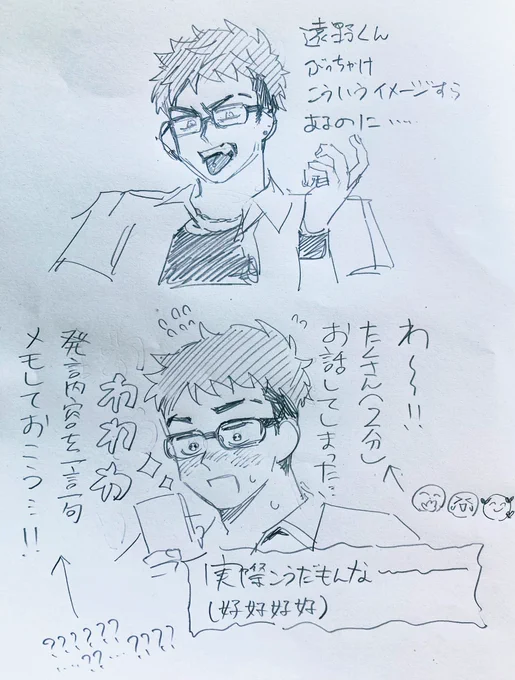 遠野くん
ぶっちゃけ
こういうイメージすら
あるのに……
わ〜〜!!
たくさん(2分)
お話してしまった…
わわわ
発言内容を一言一句
メモしておこう…!!
??????
……??…????
実際こうだもんな〜
(好好好好)